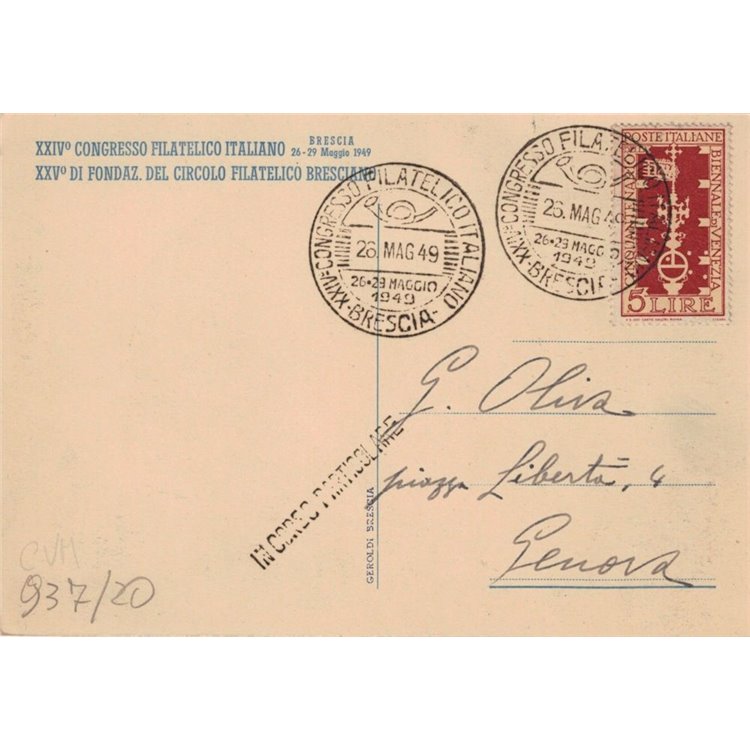 XXIVº CONGRESSO FILATELICO ITALIANO BRESCIA 26-29 Maggio 1949
XXVº DI FONDAZ. DEL CIRCOLO FILATELICO BRESCIANO
XXIVº CONGRESSO FILATELICO ITALIANO
26. MAG 49
26-29 MAGGIO
1949
BRESCIA
XXIVº CONGRESSO FILATELICO
26. MAG 49
26-29 MAGGIO
1949
BRESCIA
POSTE ITALIANE
BIENNALE DI VENEZIA
5 LIRE
G. Oliva
piazza Libertà, 4
Genova
IN CORSO PARTICOLARE
GEROLDI BRESCIA
CVM
937/20